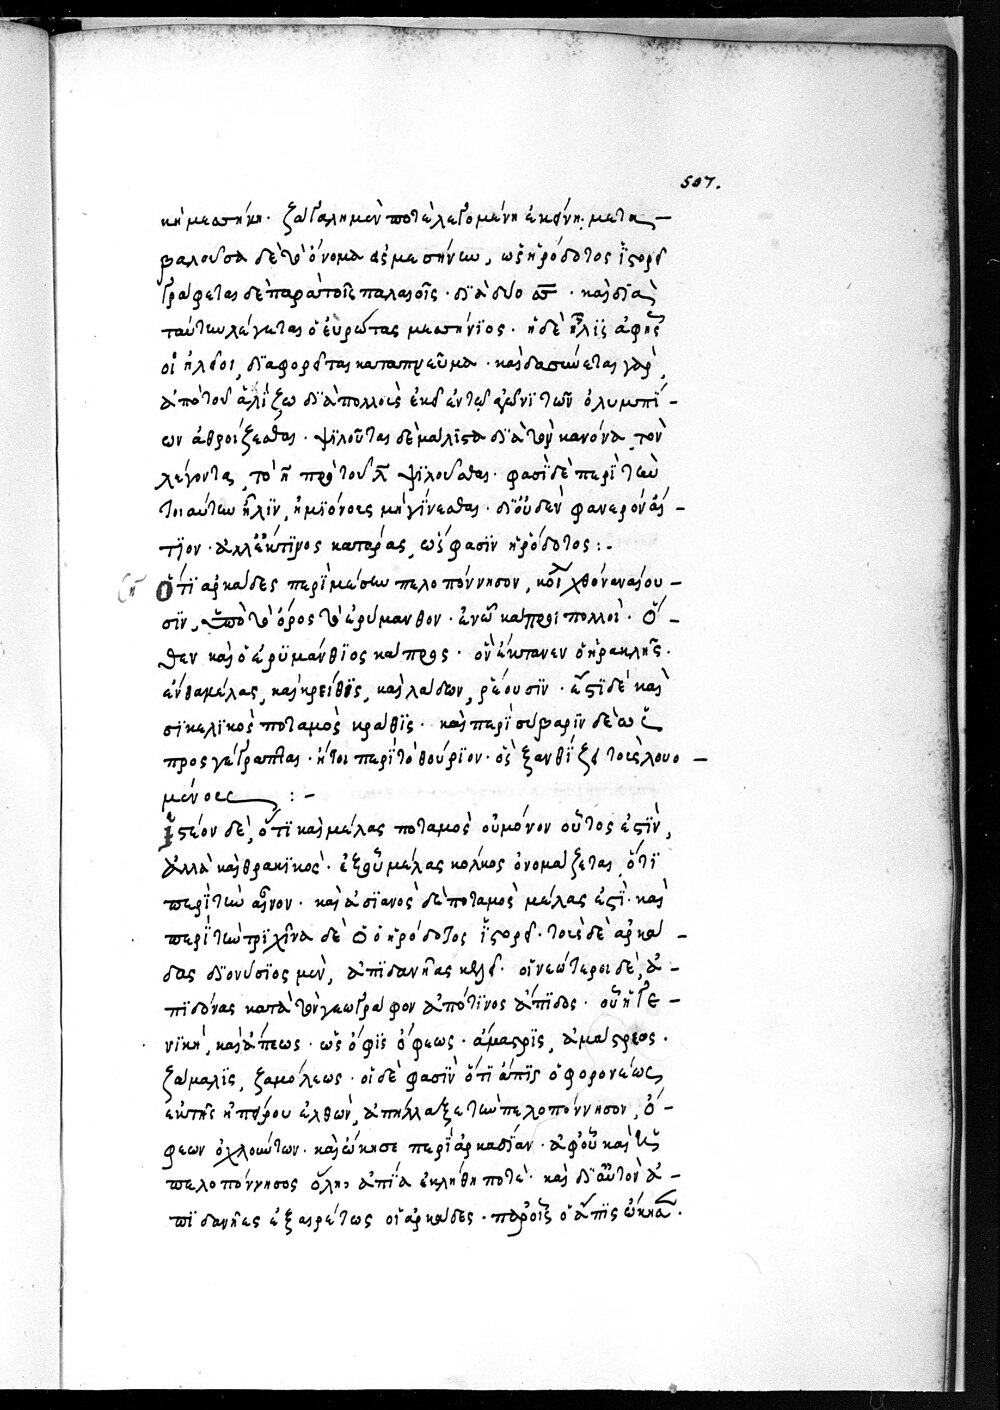 507.
κὴ μεσσήνη. ζάγκλη μὲν ποτὲ λεγομένη ἐκείνη· μετα-
βαλοῦσα δὲ τὸ ὄνομα εἰς μεσήνην, ὡς ἡρόδοτος ἱστορεῖ
γράφεται δὲ παρὰ τοῖς παλαιοῖς. διὰ δύο σσ. καὶ διὰ
ταύτην λέγεται ὁ εὐρώτας μεσσήνιος. ἡ δὲ ἦλις ἀφ' ἧς
οἱ ἠλεῖοι, διαφορεῖται κατὰ πνεῦμα. καὶ δασύνεται γὰρ,
ἀπὸ τοῦ ἁλίζω διὰ πολλοὺς ἐκεῖ ἐν τῶ ἀγῶνι τῶν ὀλυμπί-
ων ἀθροίζεσθαι. ψιλοῦται δὲ μάλιστα διὰ τὸν κανόνα τὸν
λέγοντα, τὸ η πρὸ τοῦ λ ψιλοῦσθαι. φασὶ δὲ περὶ τὴν
τοιαύτην ἦλιν, ἡμιόνους μὴ γίνεσθαι. δι' οὐδὲν φανερὸν αἴ-
τιον. ἀλλ' ἔκ τινος κατάρας, ὡς φασὶν ἡρόδοτος :.
Ὅτι ἀρκάδες περὶ μέσην πελοπόννησον, κοίλην χθόνα ναίου-
σιν, ὑπὸ τὸ ὄρος τὸ ἐρύμανθον. ἐν ᾧ κάπροι πολλοί. ὅ-
θεν καὶ ὁ ἐρυμάνθιος κάπρος. ὃν ἔκτανεν ὁ ἡρακλῆς.
ἔνθα μέλας, καὶ κρᾶθις, καὶ λάδων, ῥέουσιν. ἔστι δὲ καὶ
σικελικὸς ποταμὸς κρᾶθις. καὶ περὶ σύβαριν δὲ ὡς
προσγέγραπται. ἤτοι περὶ τὸ θούριον. ὃς ξανθίζει τοὺς λουο-
μένους :-
Ἰστέον δὲ, ὅτι καὶ μέλας ποταμὸς οὐ μόνον οὗτος ἐστὶν,
ἀλλὰ καὶ θρακικὸς. ἐξ οὗ μέλας κόλπος ὀνομάζεται, ὅτι
περὶ τὴν αἶνον. καὶ ἀσιανὸς δὲ ποταμὸς μέλας ἐστί. καὶ
περὶ τὴν τρίχῖνα δὲ ὃ ὁ ἡρόδοτος ἱστορεῖ. τοὺς δὲ ἀρκά-
δας διονύσιος μὲν, ἀπιδανῆας καλεῖ. οἱ νεώτεροι δὲ, ἀ-
πιδόνας κατὰ τὸν γεωγράφον ἀπό τινος ἄπιδος. οὗ ἡ γε-
νική, καὶ ἄπεως. ὡς ὄφις ὄφεως. ἄμαστρις, ἀμάστρεος.
ζάμαλις, ζαμόλεως. οἱ δὲ φασὶν ὅτι ἄπις ὁ φορονέως
ἐκ τῆς ἠπείρου ἐλθὼν, ἀπήλλαξε τὴν πελοπόννησον, ὄ-
φεων ὀχλούντων. καὶ ᾤκησε περὶ ἀρκαδίαν. ἀφ' οὗ καὶ ἡ
πελοπόννησος ὅλη, ἀπία ἐκλήθη ποτέ. καὶ δι' αὐτὸν ἀ-
πιδανῆες ἐξαιρέτως οἱ ἀρκάδες. παρ' οἷς ὁ ἄπις ᾤκησεν.